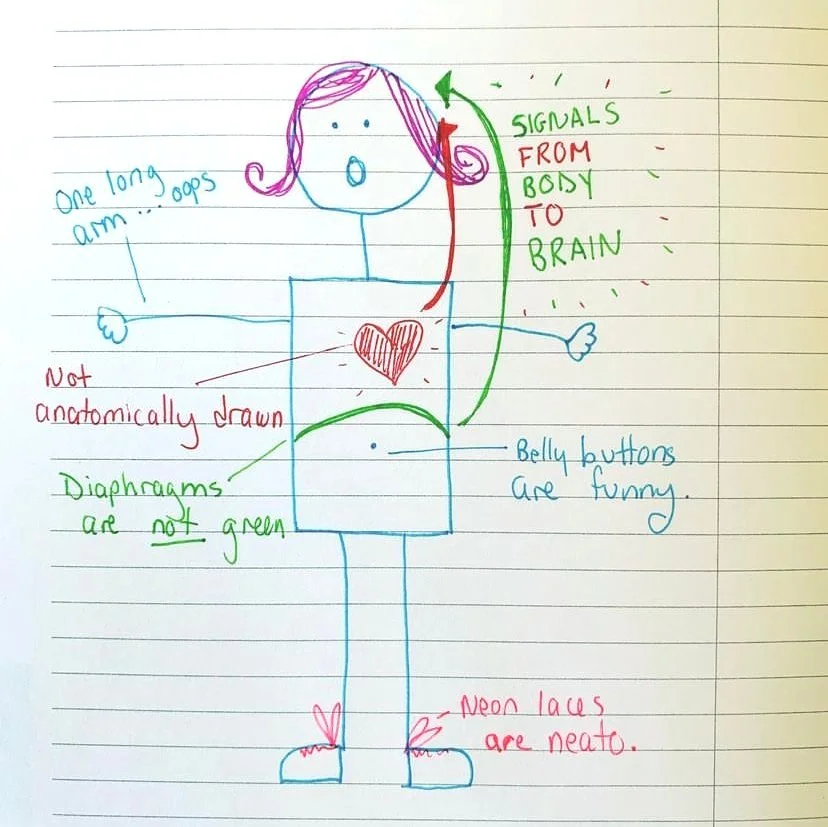 SIGNALS
FROM
BODY
TO
BRAIN
One long
arm... oops
Not
anatomically drawn
Diaphragms
are not green
Belly buttons
are funny.
Neon laces
are neato.